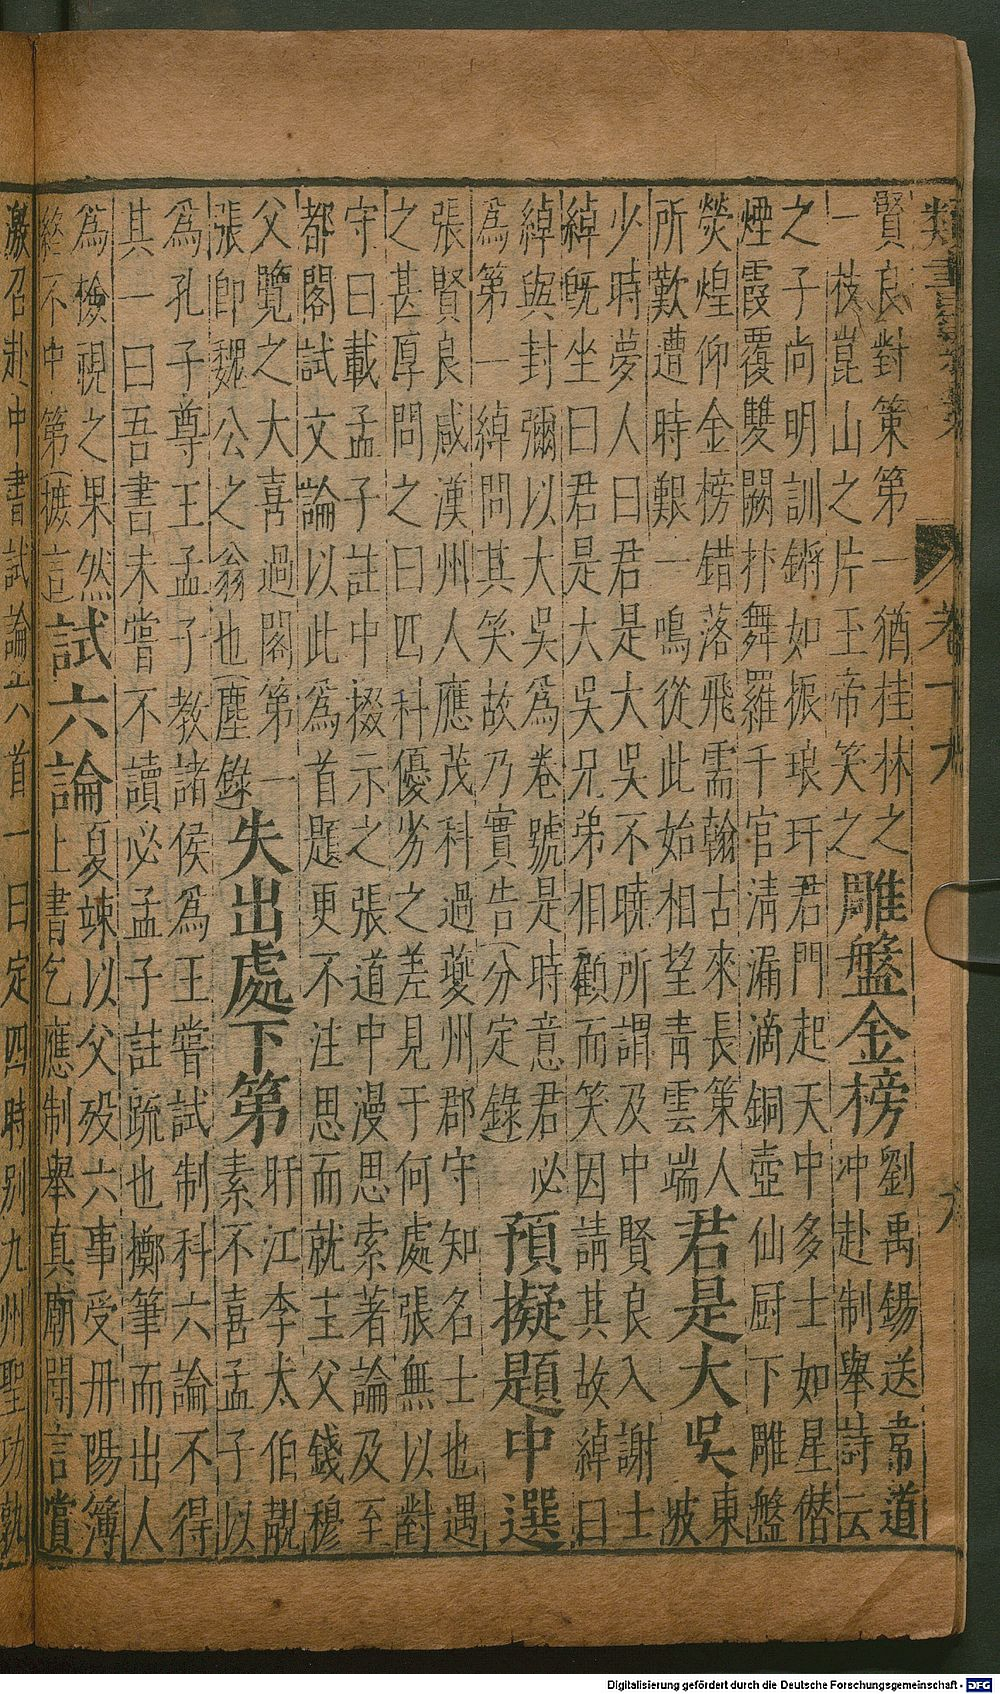 卷十九
九
賢良對策第一猶桂林之
一枝崑山之片玉帝笑之
雕盤金榜
劉禹錫送韋道
冲赴制舉詩云
之子尚明訓鏘如振琅玕君門起天中多士如星僣
煙霞覆雙闕抃舞羅千官淸漏滴銅壺仙厨下雕盤
熒煌仰金榜錯落飛需翰古來長策人
所歎遭時艱一鳴從此始相望青雲端
君是大吳
東
坡
少時夢人曰君是大吳不曉所謂及中賢良入謝士
綽旣坐曰君是大吳兄弟相顧而笑因請其故綽曰
綽與封彌以大吳爲卷號是時意君必
爲第一綽問其笑故乃實告(分定錄)
預擬題中選
張賢良咸漢州人應茂科過夔州郡守知名士也遇
之甚厚問之曰四科優劣之差見于何處張無以對
守曰載孟子註中掇示之張道中漫思索著論及至
都閣試文論以此爲首題更不注思而就主父錢穆
父覽之大喜過閣第一
張卽魏公之翁也(塵錄
失出處下第
盱江李太伯覯
素不喜孟子以
爲孔子尊王孟子教諸侯爲王嘗試制科六論不得
其一曰吾書未嘗不讀必孟子註疏也擲筆而出人
爲檢視之果然
終不中第(摭言
試六論
夏竦以父歿六事受丹陽簿
上書乞應制舉真廟聞言賞
激召赴中書試論六首一曰定四時别九州聖功孰
Digitalisierung gefördert durch die Deutsche Forschungsgemeinschaft - DFG